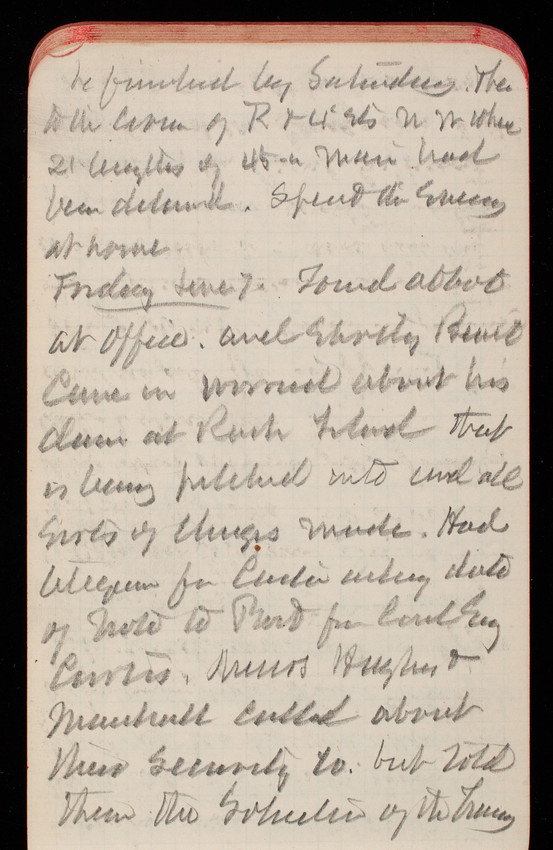 be finished by Saturday. Then
to the corner of R & 4 sts N W where
21 lengths of 48 in main had
been delivered. Spend the Evening
at home
Friday June 7. Found Abbot
at Office. and Shortly Benét
Came in worried about his
dam at Rock Island that
is being pitched into and all
Sorts of Charges made. Had
telegram for asking date
of note to Bord for Coal Eng
Curtis. Messrs Hughes &
Marshall called about
their Security Co. but told
them the Solicitor of the Treasy